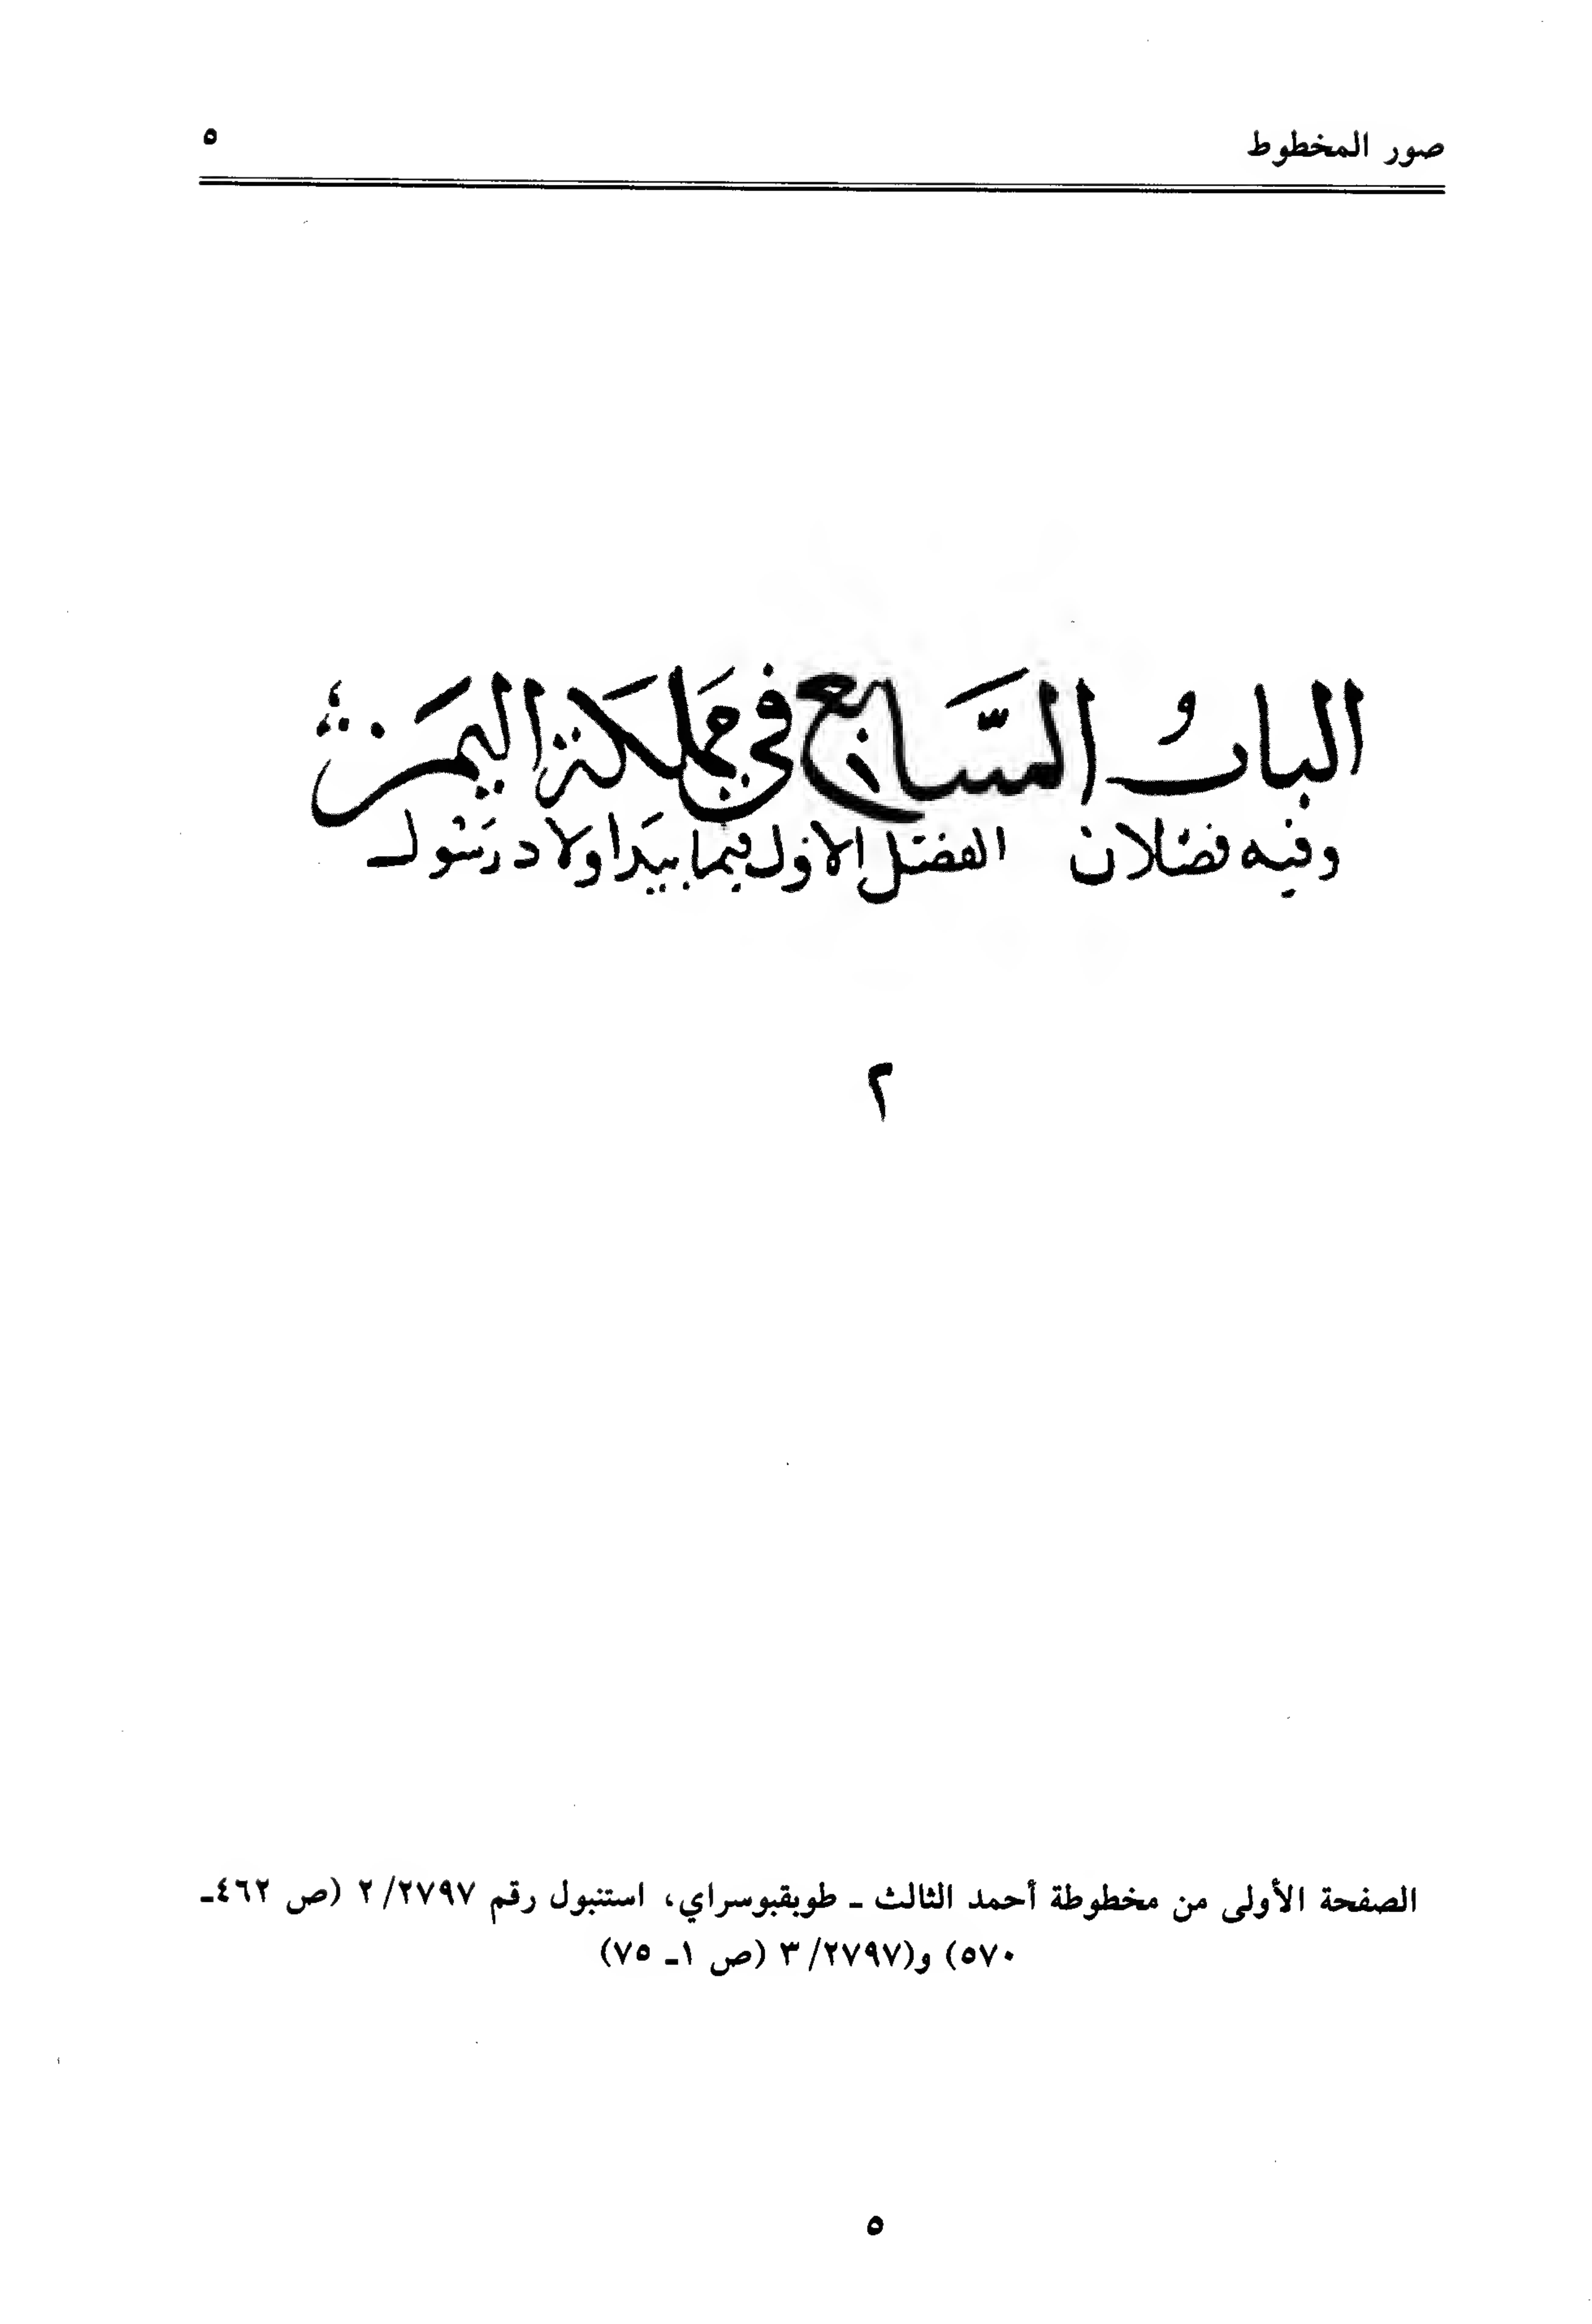 صور المخطوط
٥
الباب السابع في مملكة اليمن
وفيه فصلان الفصل الاول فيما بيد اولاد رسول
٢
الصفحة الأولى من مخطوطة أحمد الثالث ـ طوبقبوسراي، استنبول رقم ٢/٢٧٩٧ (ص ٤٦٢ـ
٥٧٠) و(٣/٢٧٩٧ (ص ١ـ ٧٥)
٥